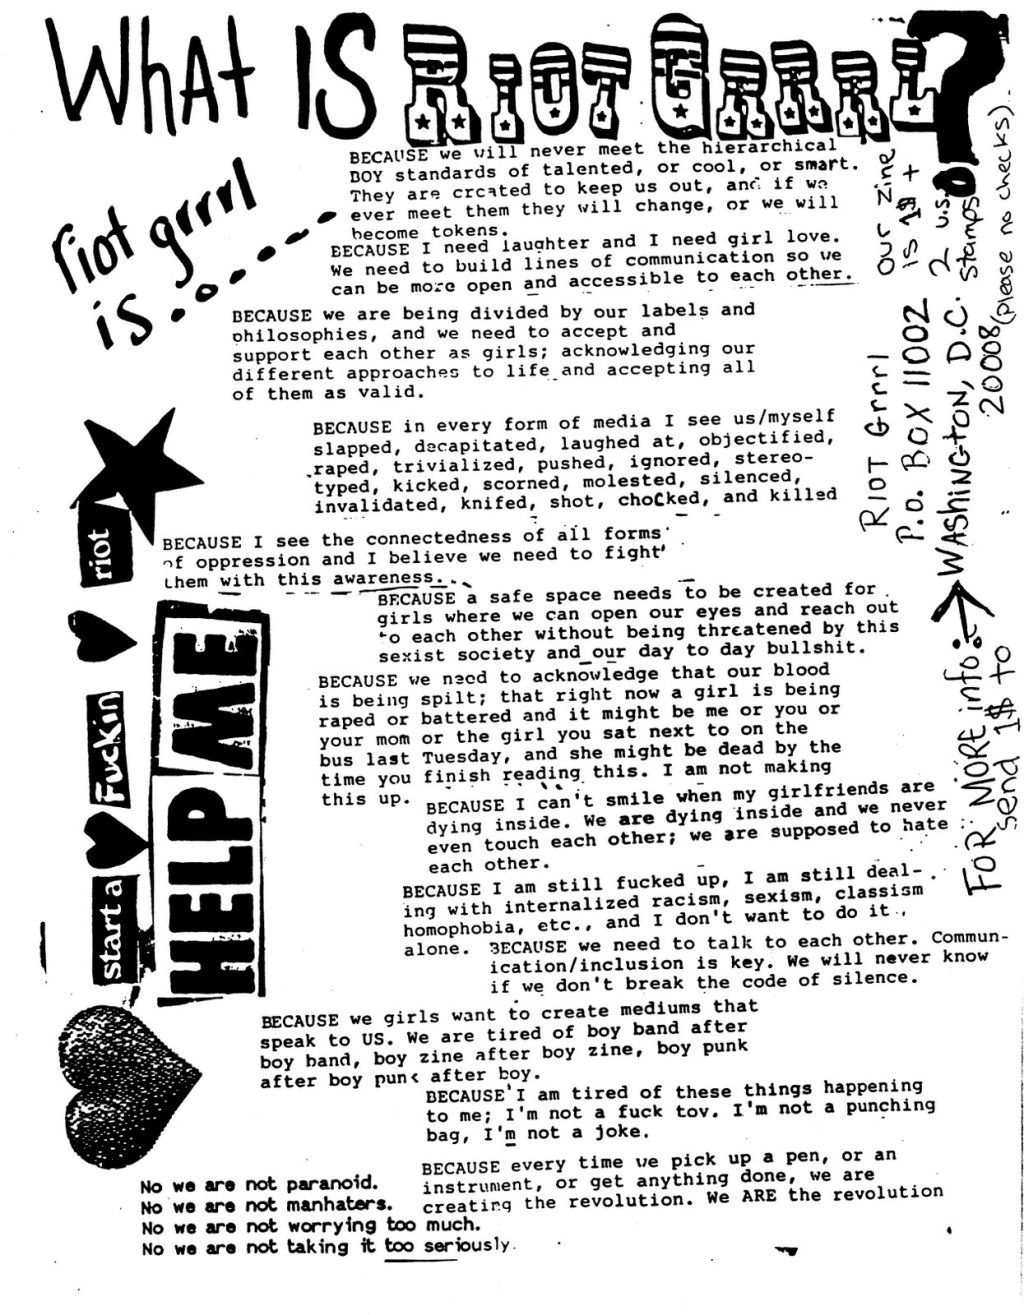 WhAt IS RIOT GRRRL?
riot grrrl
is.....
BECAUSE we will never meet the hierarchical
BOY standards of talented, or cool, or smart.
They are created to keep us out, and if we
ever meet them they will change, or we will
become tokens.
BECAUSE I need laughter and I need girl love.
We need to build lines of communication so we
can be more open and accessible to each other.
BECAUSE we are being divided by our labels and
philosophies, and we need to accept and
support each other as girls; acknowledging our
different approaches to life and accepting all
of them as valid.
BECAUSE in every form of media I see us/myself
slapped, decapitated, laughed at, objectified,
raped, trivialized, pushed, ignored, stereo-
typed, kicked, scorned, molested, silenced,
invalidated, knifed, shot, chocked, and killed
BECAUSE I see the connectedness of all forms
of oppression and I believe we need to fight
them with this awareness...
BECAUSE a safe space needs to be created for
girls where we can open our eyes and reach out
to each other without being threatened by this
sexist society and our day to day bullshit.
BECAUSE we need to acknowledge that our blood
is being spilt; that right now a girl is being
raped or battered and it might be me or you or
your mom or the girl you sat next to on the
bus last Tuesday, and she might be dead by the
time you finish reading this. I am not making
this up.
BECAUSE I can't smile when my girlfriends are
dying inside. We are dying inside and we never
even touch each other; we are supposed to hate
each other.
BECAUSE I am still fucked up, I am still deal-
ing with internalized racism, sexism, classism
homophobia, etc., and I don't want to do it
alone.
BECAUSE we need to talk to each other. Commun-
ication/inclusion is key. We will never know
if we don't break the code of silence.
BECAUSE we girls want to create mediums that
speak to US. We are tired of boy band after
boy band, boy zine after boy zine, boy punk
after boy punk after boy.
BECAUSE I am tired of these things happening
to me; I'm not a fuck toy. I'm not a punching
bag, I'm not a joke.
BECAUSE every time we pick up a pen, or an
instrument, or get anything done, we are
creating the revolution. We ARE the revolution
No we are not paranoid.
No we are not manhaters.
No we are not worrying too much.
No we are not taking it too seriously.
start a
Fuckin
riot
HELP ME
FOR MORE info:
send 1$ to
RIOT Grrrl
P.O. BOX 11002
WASHINGTON, D.C.
20008
(please no checks).
our zine
is 1$ +
2 u.s.
stamps